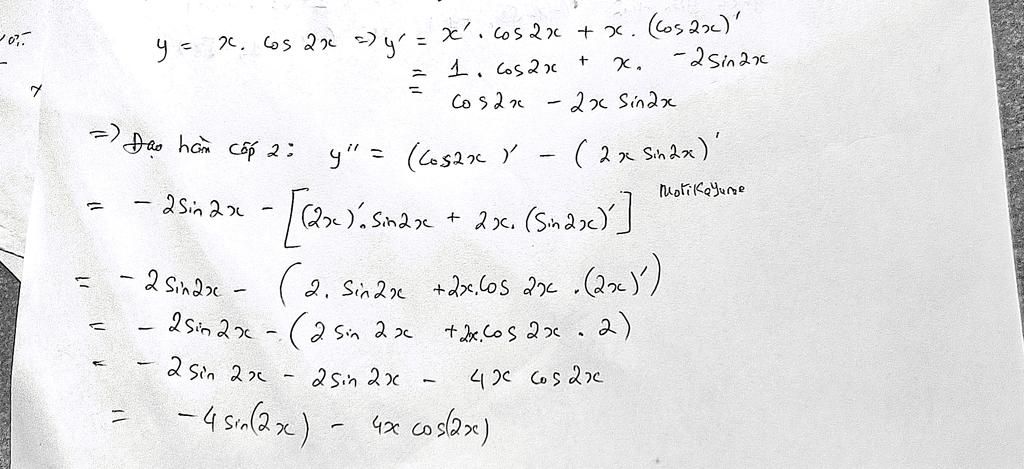 y = x. cos 2x => y' = x'. cos 2x + x. (cos 2x)'
= 1. cos2x + x. -2sin2x
= cos2x - 2x sin2x
=> Đạo hàm cấp 2: y'' = (cos2x)' - (2x sin2x)'
= -2sin2x - [(2x)'. sin2x + 2x. (sin2x)']
= -2sin2x - (2. sin2x +2x.cos 2x .(2x)')
= -2sin2x - (2 sin 2x +2x.cos 2x . 2)
= -2 sin 2x - 2sin 2x - 4x cos2x
= -4 sin(2x) - 4x cos(2x)